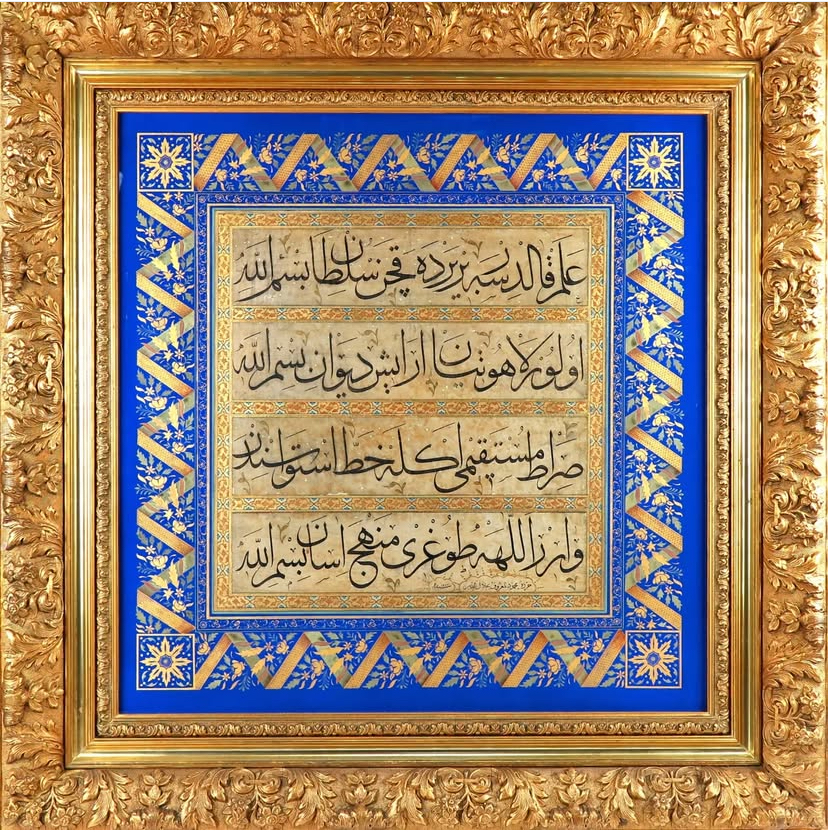 علم قالدرسه بريرده قچن سلطان بسم الله
اولور لاهوتيان ارايش ديوان بسم الله
صراط مستقيمى اكله خط استواسندن
وارر اللهه طوغرى منهج اسان بسم الله